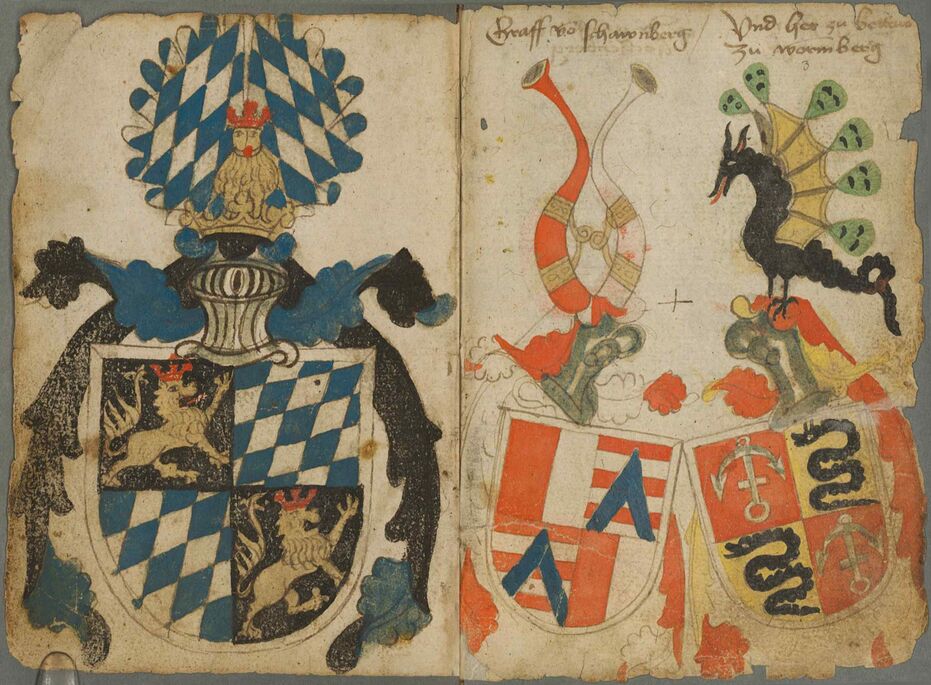 Graff vo schawnberg
Und her zu
zu wormberg
3